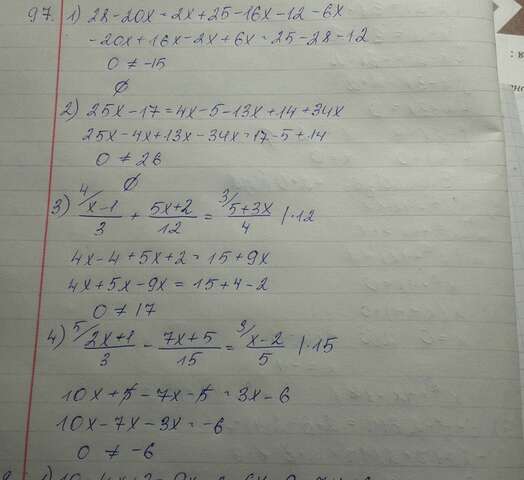 97. 1) 28-20x=2x+25-16x-12-6x
-20x+16x-2x+6x=25-28-12
0 ≠ -15
∅
2) 25x-17=4x-5-13x+14+34x
25x-4x+13x-34x=17-5+14
0 ≠ 26
∅
3) 4/ x-1/3 + 5x+2/12 = 3/ 5+3x/4 |·12
4x-4+5x+2=15+9x
4x+5x-9x=15+4-2
0 ≠ 17
4) 5/ 2x+1/3 - 7x+5/15 = 3/ x-2/5 |·15
10x+5-7x-5=3x-6
10x-7x-3x=-6
0 ≠ -6